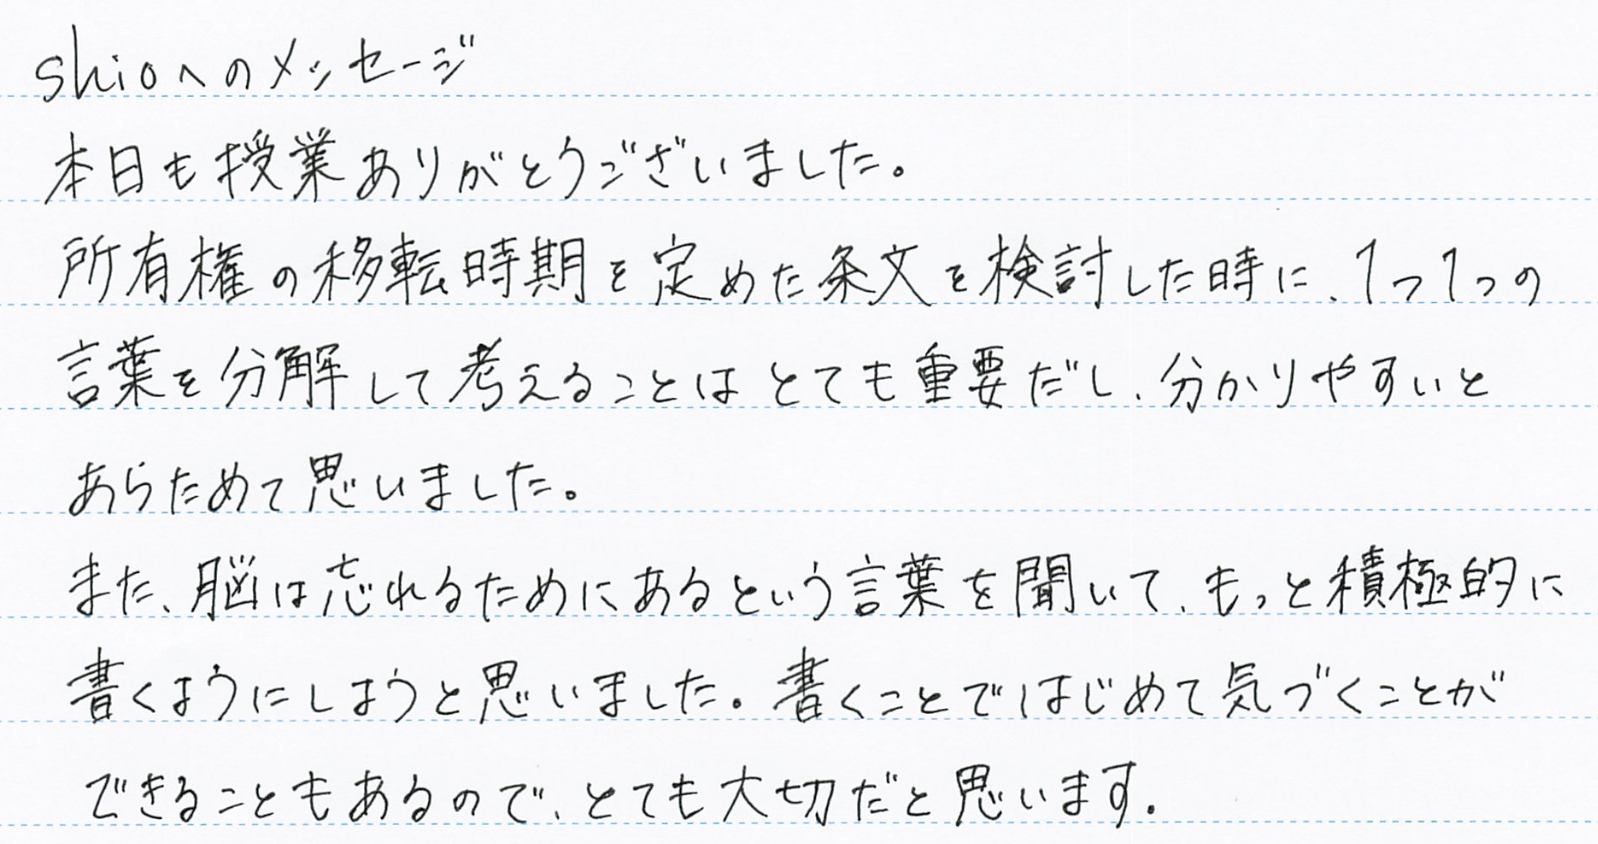 shioへのメッセージ
本日も授業ありがとうございました。
所有権の移転時期を定めた条文を検討した時に、1つ1つの
言葉を分解して考えることはとても重要だし、分かりやすいと
あらためて思いました。
また、脳は忘れるためにあるという言葉を聞いて、もっと積極的に
書くようにしようと思いました。書くことではじめて気づくことが
できることもあるので、とても大切だと思います。